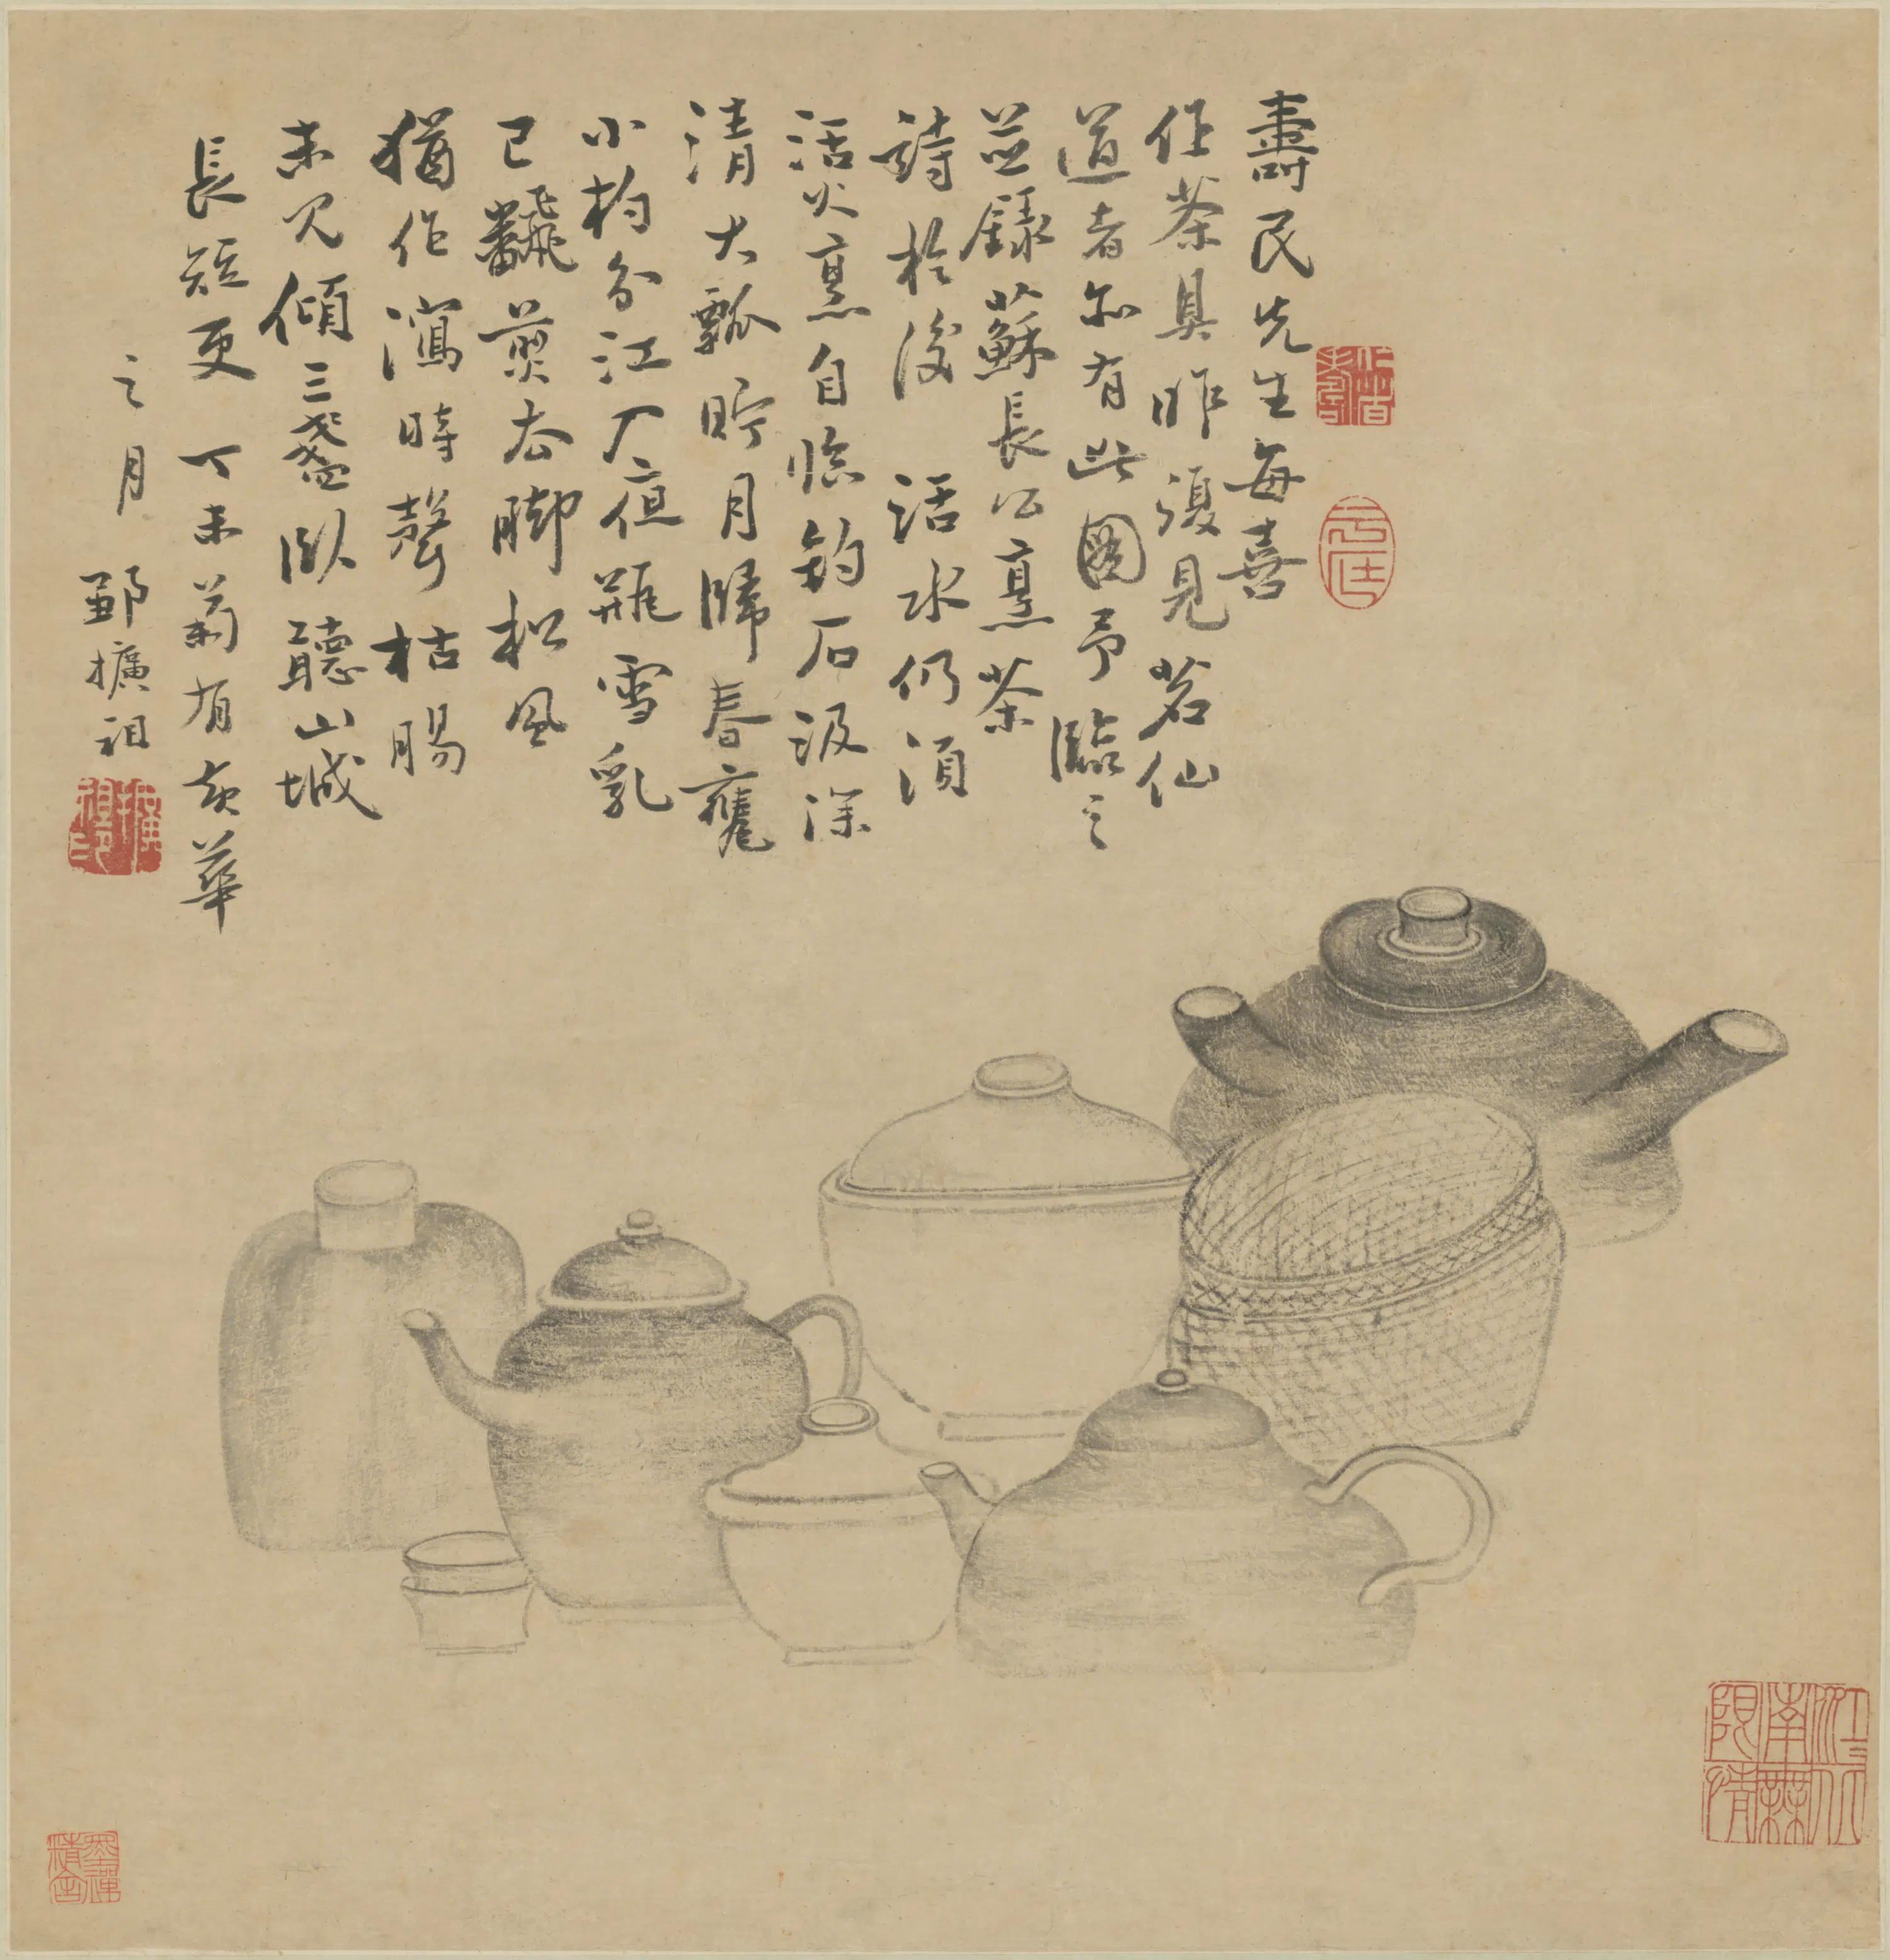 壽民先生每喜
作茶具昨復見茗仙
道者亦有此圖予臨之
並錄蘇長公烹茶
詩於後 活水仍須
活火烹自臨釣石汲深
清大瓢貯月歸春甕
小杓分江入夜瓶雪乳
已飜煎處脚松風
猶作瀉時聲枯腸
未免傾三盞臥聽山城
長短更 丁未菊有黃華
之月 鄞擴祖
江南無所有
墨禪精舍